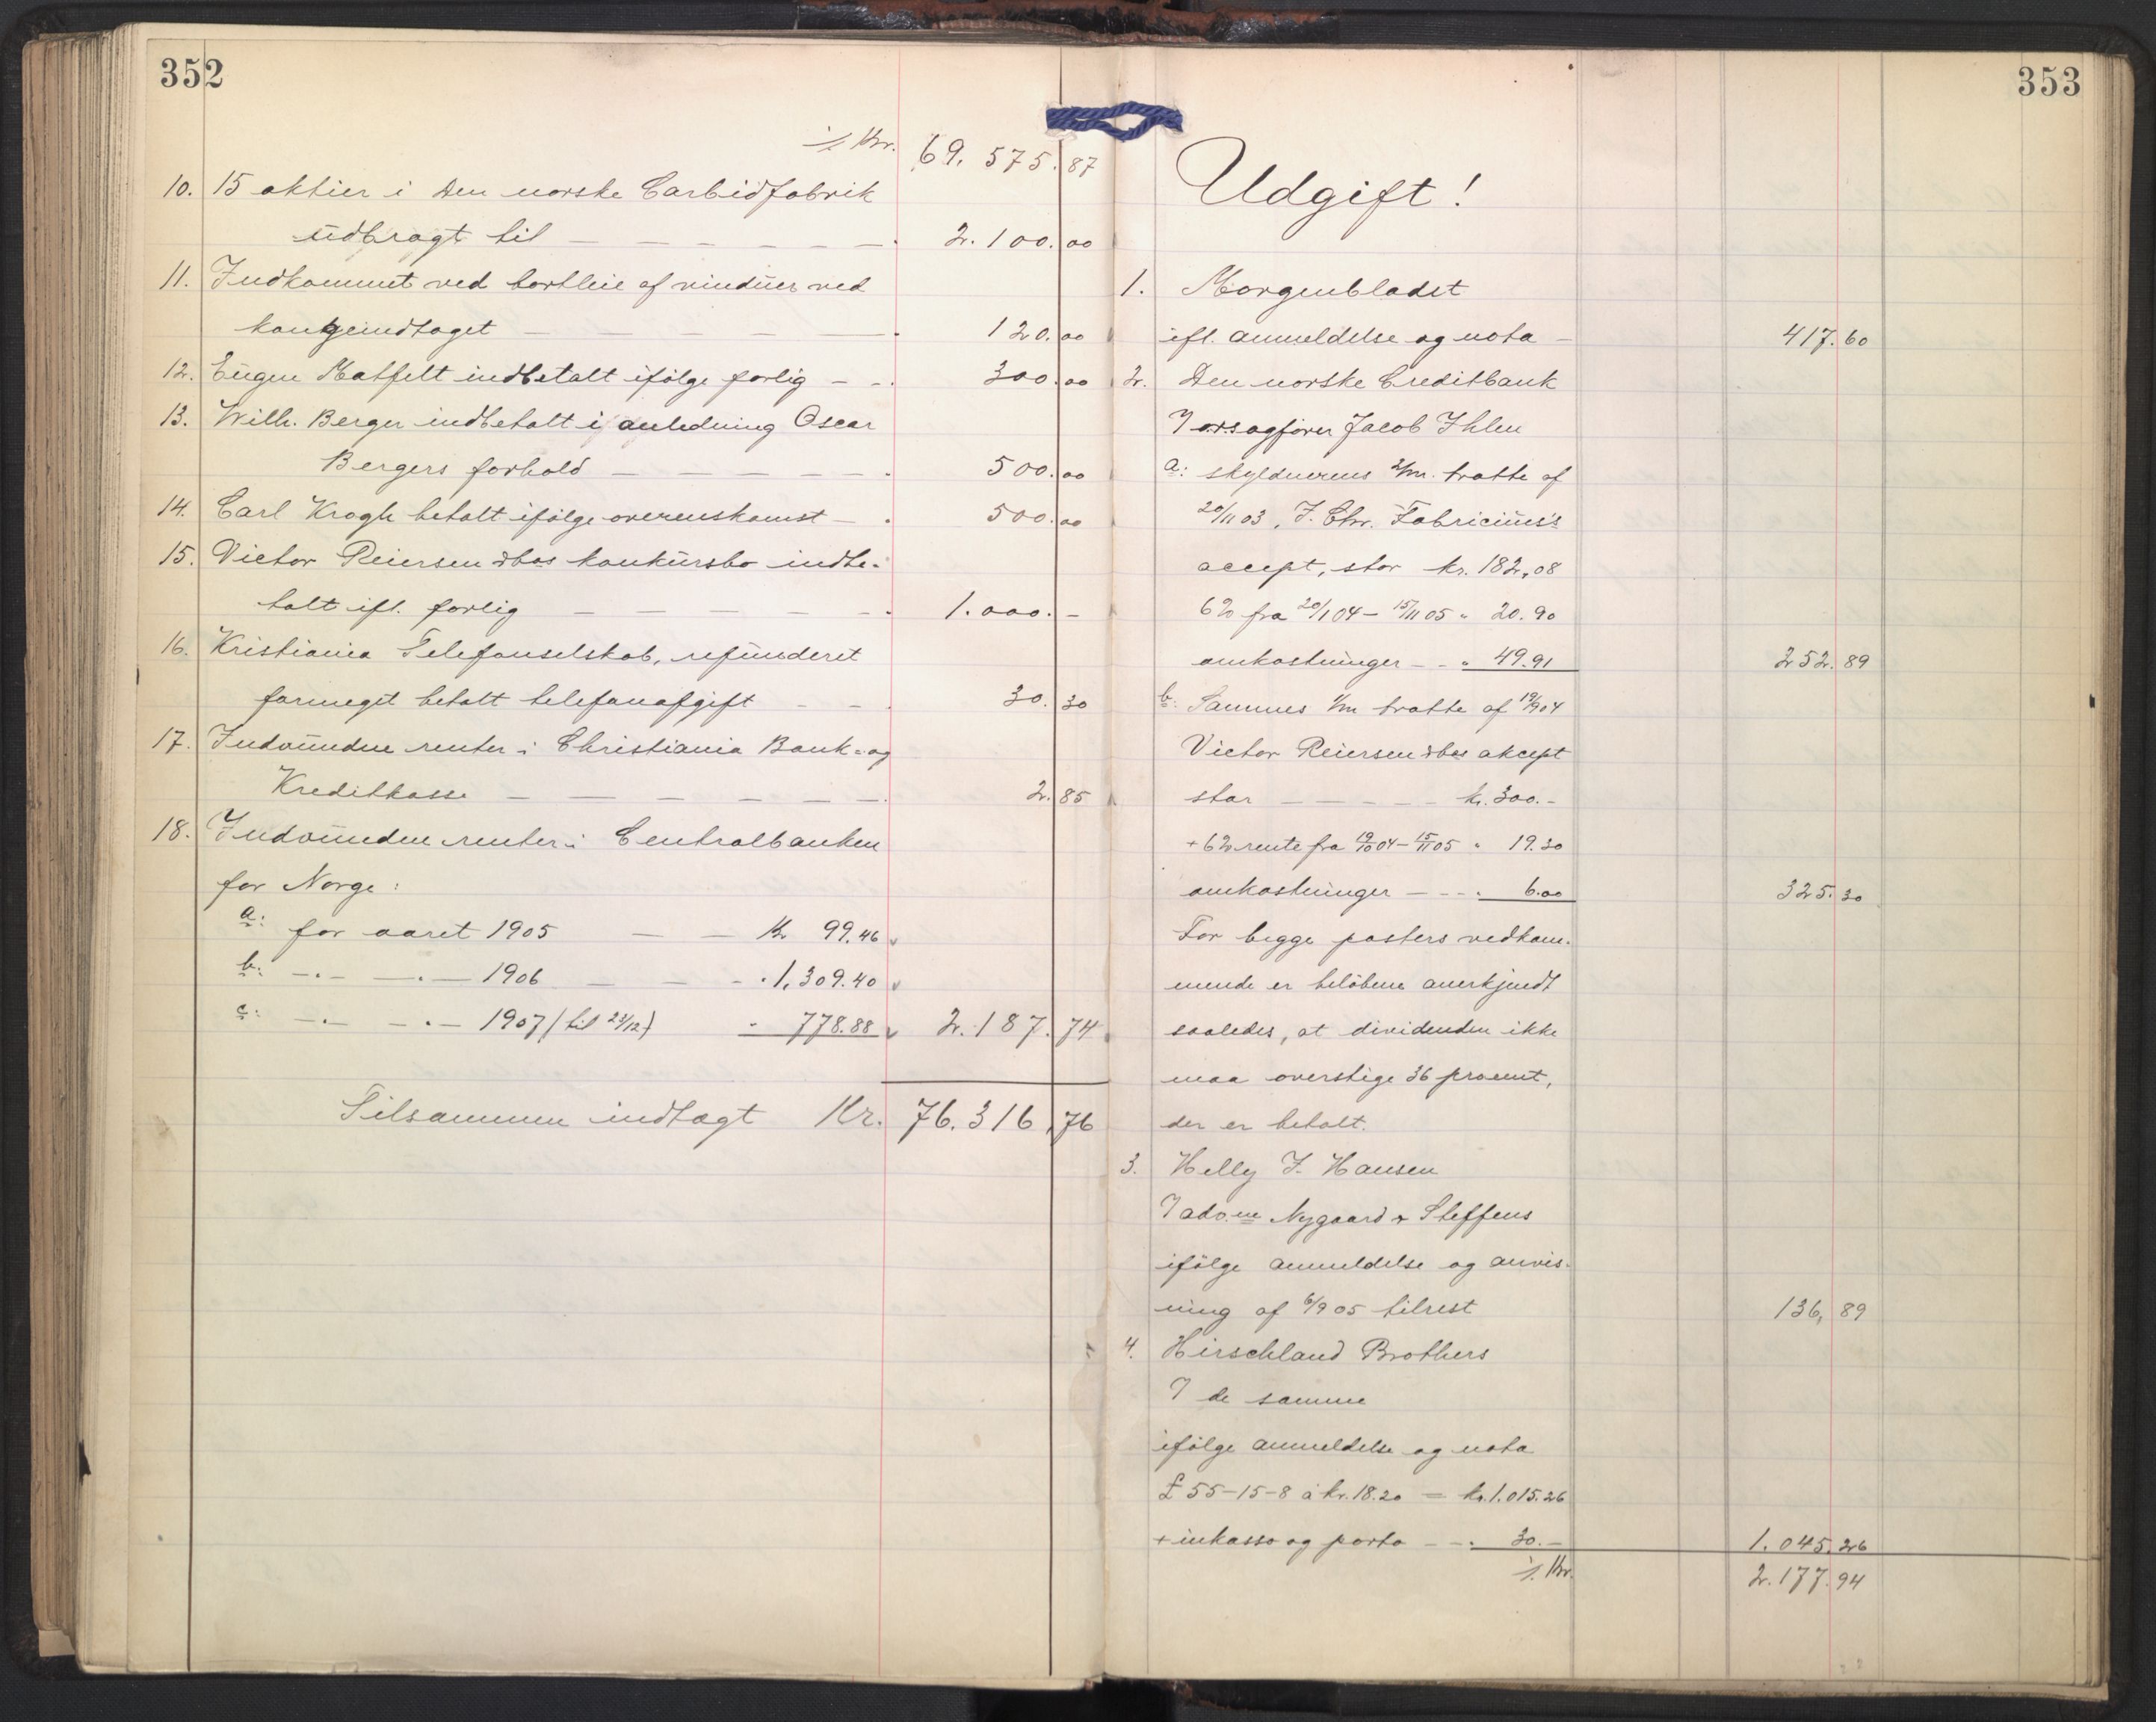 352
⁒ Kr. 69.575.87
10. 15 aktier i Den norske Carbidfabrik
udbragt til — — — — — — 2.100.00
11. Indkommet ved bortleie af vinduer ved
kongeindtoget — — — — — 120.00
12. Eugen Matfelt indbetalt ifölge forlig — - 300.00
13. Wilh. Berger indbetalt i anledning Oscar
Bergers forhold — — — — — 500.00
14. Carl Krogh betalt ifölge overenskomst — 500.00
15. Victor Reiersen dbos konkursbo indbe-
talt ifl. forlig — — — — — 1.000.-
16. Kristiania Telefonselskab, refunderet
formeget betalt telefonafgift - - 30.30
17. Indvundne renter i Christiania Bank- og
Kreditkasse — — — — — — 2.85
18. Indvundne renter i Centralbanken
for Norge:
a: for aaret 1905 — — Kr 99.46
b: —.— —.— 1906 — — - . 1,309.40
c: —.— —.— 1907 (til 23/12) " 778.88 2.187.74
Tilsammen indtagt Kr. 76.316,76
353
Udgift!
1. Morgenbladet
ifl. anmeldelse og nota — 417.60
2. Den norske Creditbank
/ orsagförer Jacob Ihlen
a: skyldnerens 2/m. tratte af
20/11 03, J. Chr. Fabricius's
accept, stor kr. 182,08
6% fra 20/1 04 — 15/11 05 " 20.90
omkostninger — - " 49.91 252.89
b: Sammes 1/m tratte af 19/9 04
Victor Reiersen dbos akcept
stor — — — — — kr. 300.-
+ 6% rente fra 19/10 04 — 15/11 05 " 19.30
omkostninger — - - . 6.00 325.30
For begge posters vedkom-
mende er belöbene anerkjendt
saaledes, at dividenden ikke
maa overstige 36 procent,
der er betalt.
3. Helly J. Hansen
/ adv.ne Nygaard & Steffens
ifölge anmeldelse og anvis-
ning af 6/9 05 tilrest 136,89
4. Hirschland Brothers
/ de samme
ifölge anmeldelse og nota
£ 55-15-8 à kr. 18.20 = kr. 1.015.26
+ inkasso og porto — - . 30.- 1.045.26
⁒ Kr. 2.177.94